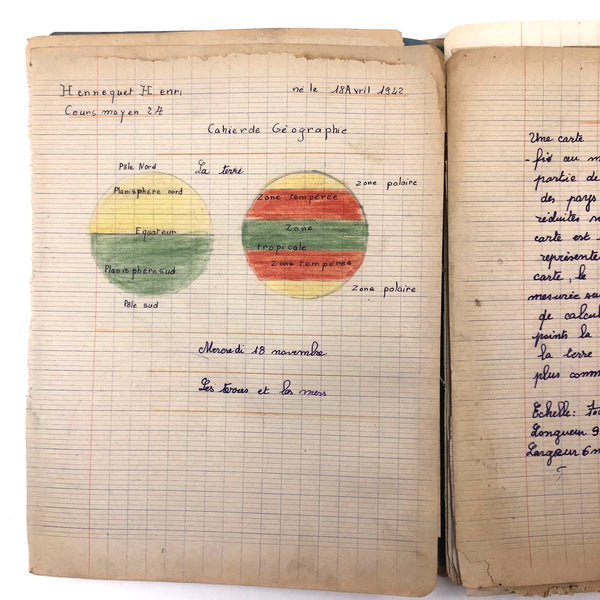 Hennequet Henri né le 18 Avril 1942
Cours moyen 2A
Cahier de Géographie
La terre
Pôle Nord
Planisphère nord
Equateur
Planisphère sud
Pôle sud
zone polaire
Zone tempérée
Zone
tropicale
Zone tempérée
Zone polaire
Mercredi 18 novembre
Les terres et les mers
Une carte
- fié au m
partie de
des pays
réduites
carte est
représente
carte, le
mesurée su
de calcul
points la
la terre
plus comm
Echelle:
Longueur 9
Largeur 6 m